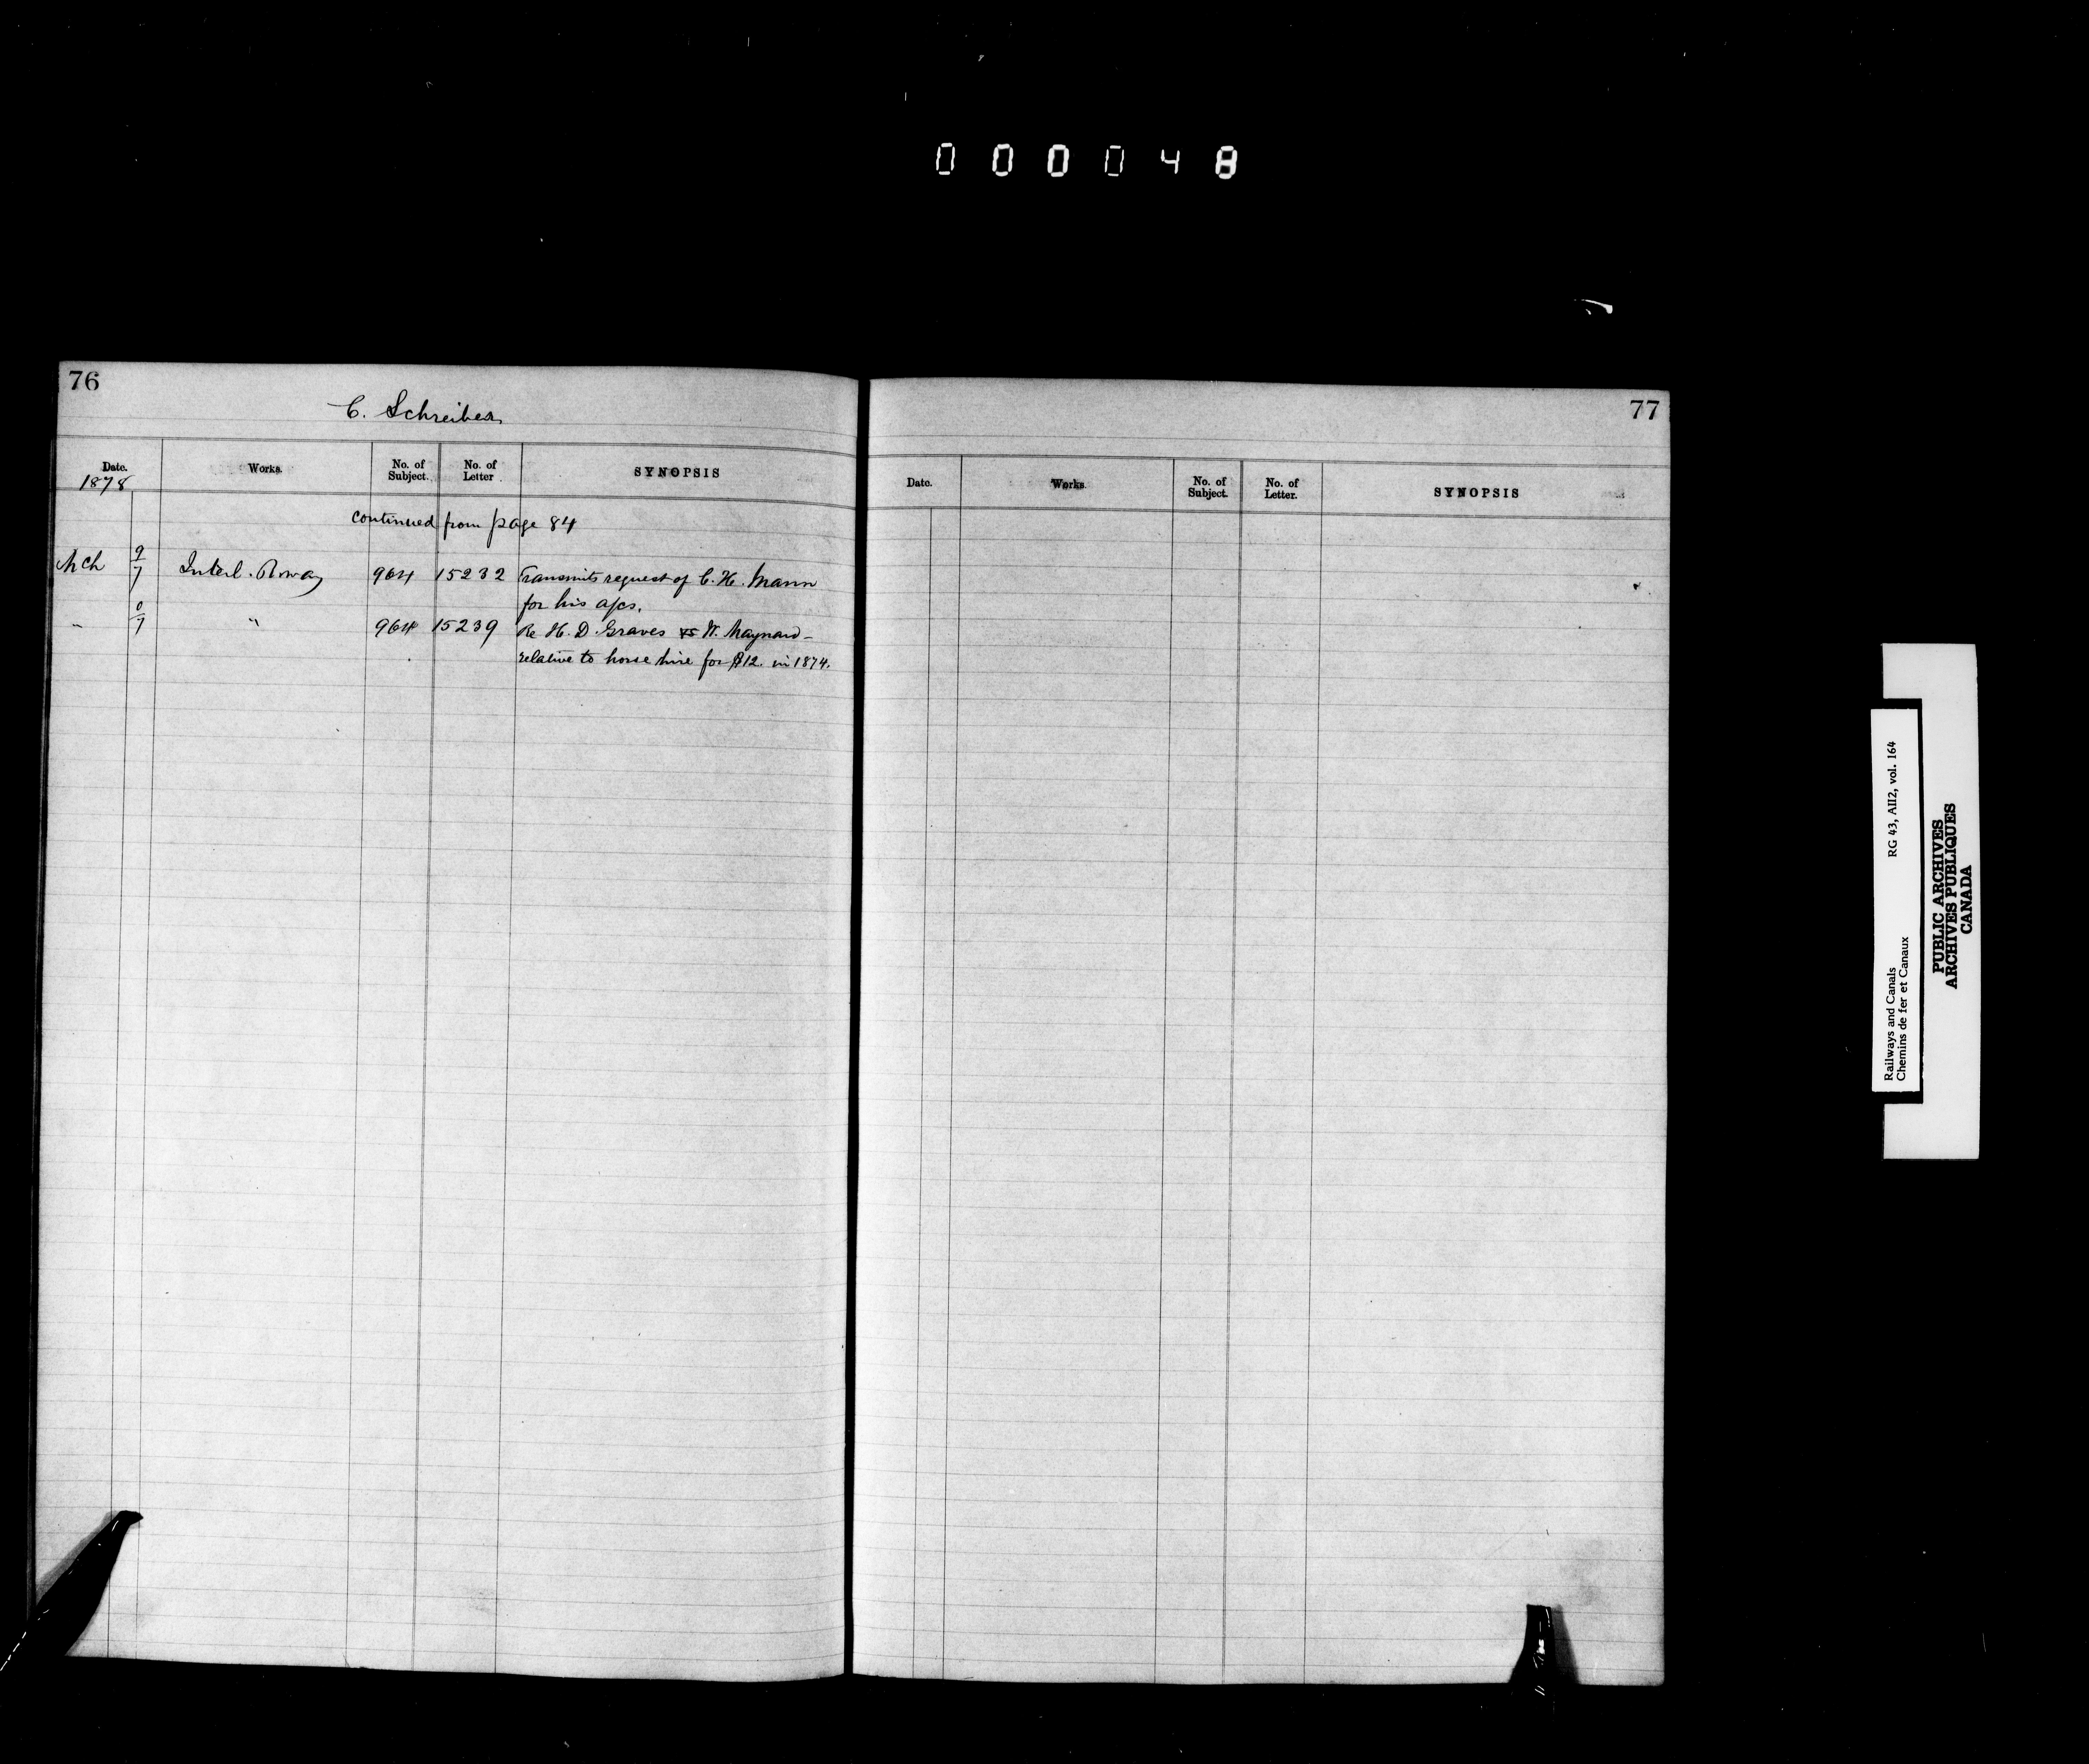 000048
76
C. Schreiber
Date. Works. No. of Subject. No. of Letter SYNOPSIS
1878
continued from page 84
Mch 9/7 Interl. Rway 964 15232 Transmits request of C. H. Mann
for his a/cs.
" 0/7 " 964 15239 Re H. D. Graves vs W. Maynard -
relative to horse hire for $12. in 1874.
77
Date. Works. No. of Subject. No. of Letter. SYNOPSIS
Railways and Canals RG 43, AII2, vol. 164
Chemins de fer et Canaux
PUBLIC ARCHIVES
ARCHIVES PUBLIQUES
CANADA